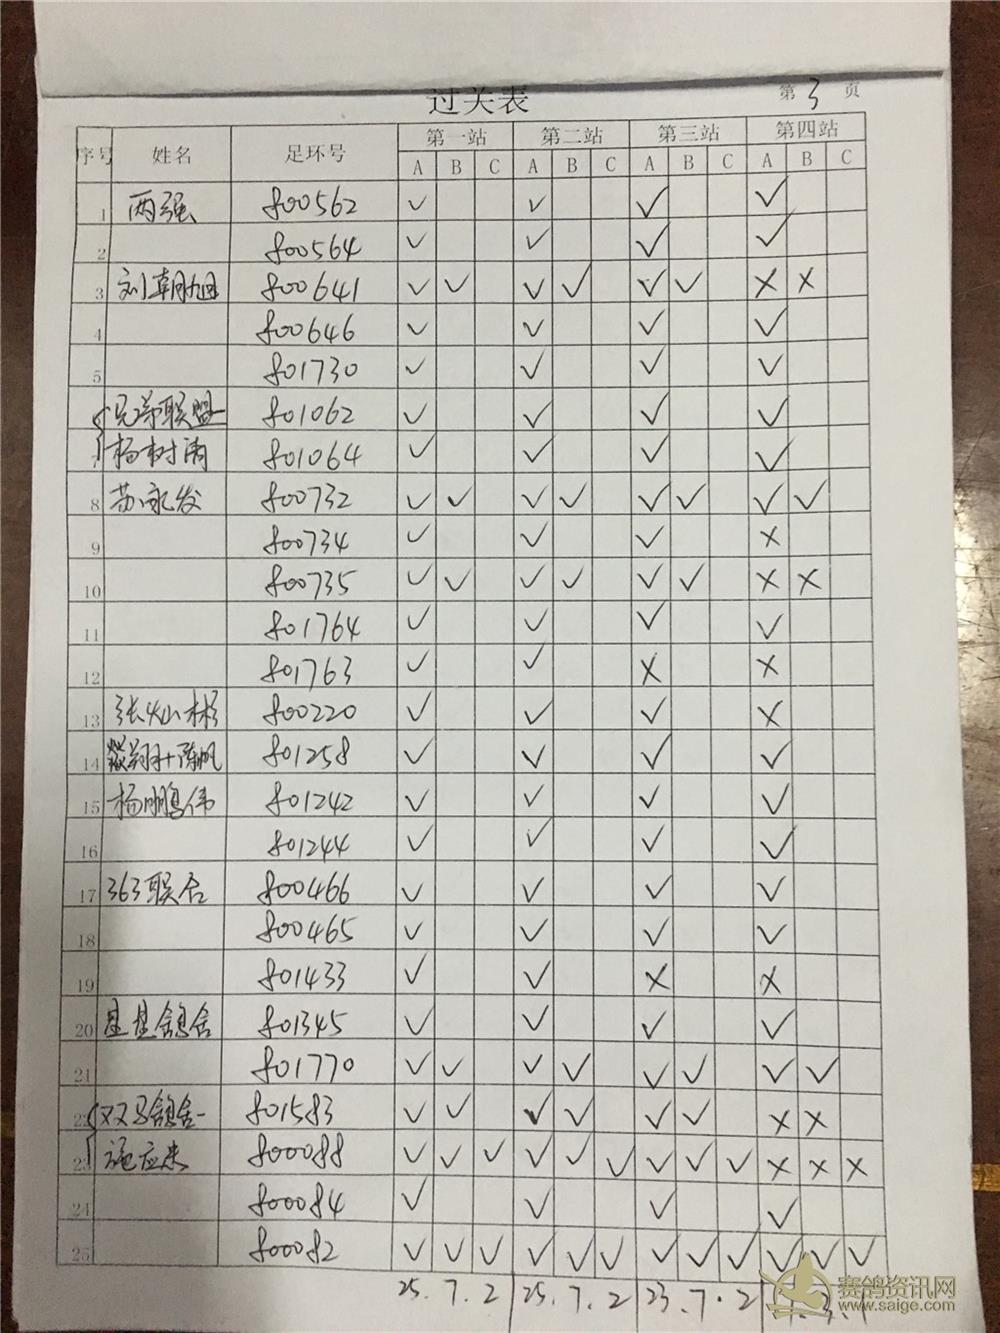 过关表
第 3 页
序号 姓名 足环号 第一站 第二站 第三站 第四站
A B C A B C A B C A B C
1 两强 800562 ✓ ✓ ✓ ✓
2 800564 ✓ ✓ ✓ ✓
3 刘朝旭 800641 ✓ ✓ ✓ ✓ ✓ ✓ × ×
4 800646 ✓ ✓ ✓ ✓
5 801730 ✓ ✓ ✓ ✓
兄弟联盟- 801062 ✓ ✓ ✓ ✓
7 杨树清 801064 ✓ ✓ ✓ ✓
8 苏永发 800732 ✓ ✓ ✓ ✓ ✓ ✓ ✓ ✓
9 800734 ✓ ✓ ✓ ×
10 800735 ✓ ✓ ✓ ✓ ✓ ✓ × ×
11 801764 ✓ ✓ ✓ ✓
12 801763 ✓ ✓ × ×
13 张灿彬 800220 ✓ ✓ ✓ ×
14 翔+陈帆 801258 ✓ ✓ ✓ ✓
15 杨鹏伟 801242 ✓ ✓ ✓ ✓
16 801244 ✓ ✓ ✓ ✓
17 363联合 800466 ✓ ✓ ✓ ✓
18 800465 ✓ ✓ ✓ ✓
19 801433 ✓ ✓ × ×
20 鸽舍 801345 ✓ ✓ ✓ ✓
21 801770 ✓ ✓ ✓ ✓ ✓ ✓ ✓ ✓
22 双马鸽舍- 801583 ✓ ✓ ✓ ✓ ✓ ✓ × ×
23 施应来 800088 ✓ ✓ ✓ ✓ ✓ ✓ ✓ ✓ ✓ × × ×
24 800084 ✓ ✓ ✓ ✓
25 800082 ✓ ✓ ✓ ✓ ✓ ✓ ✓ ✓ ✓ ✓ ✓ ✓
25.7.2 25.7.2 23.7.2
赛鸽资讯网
www.saige.com